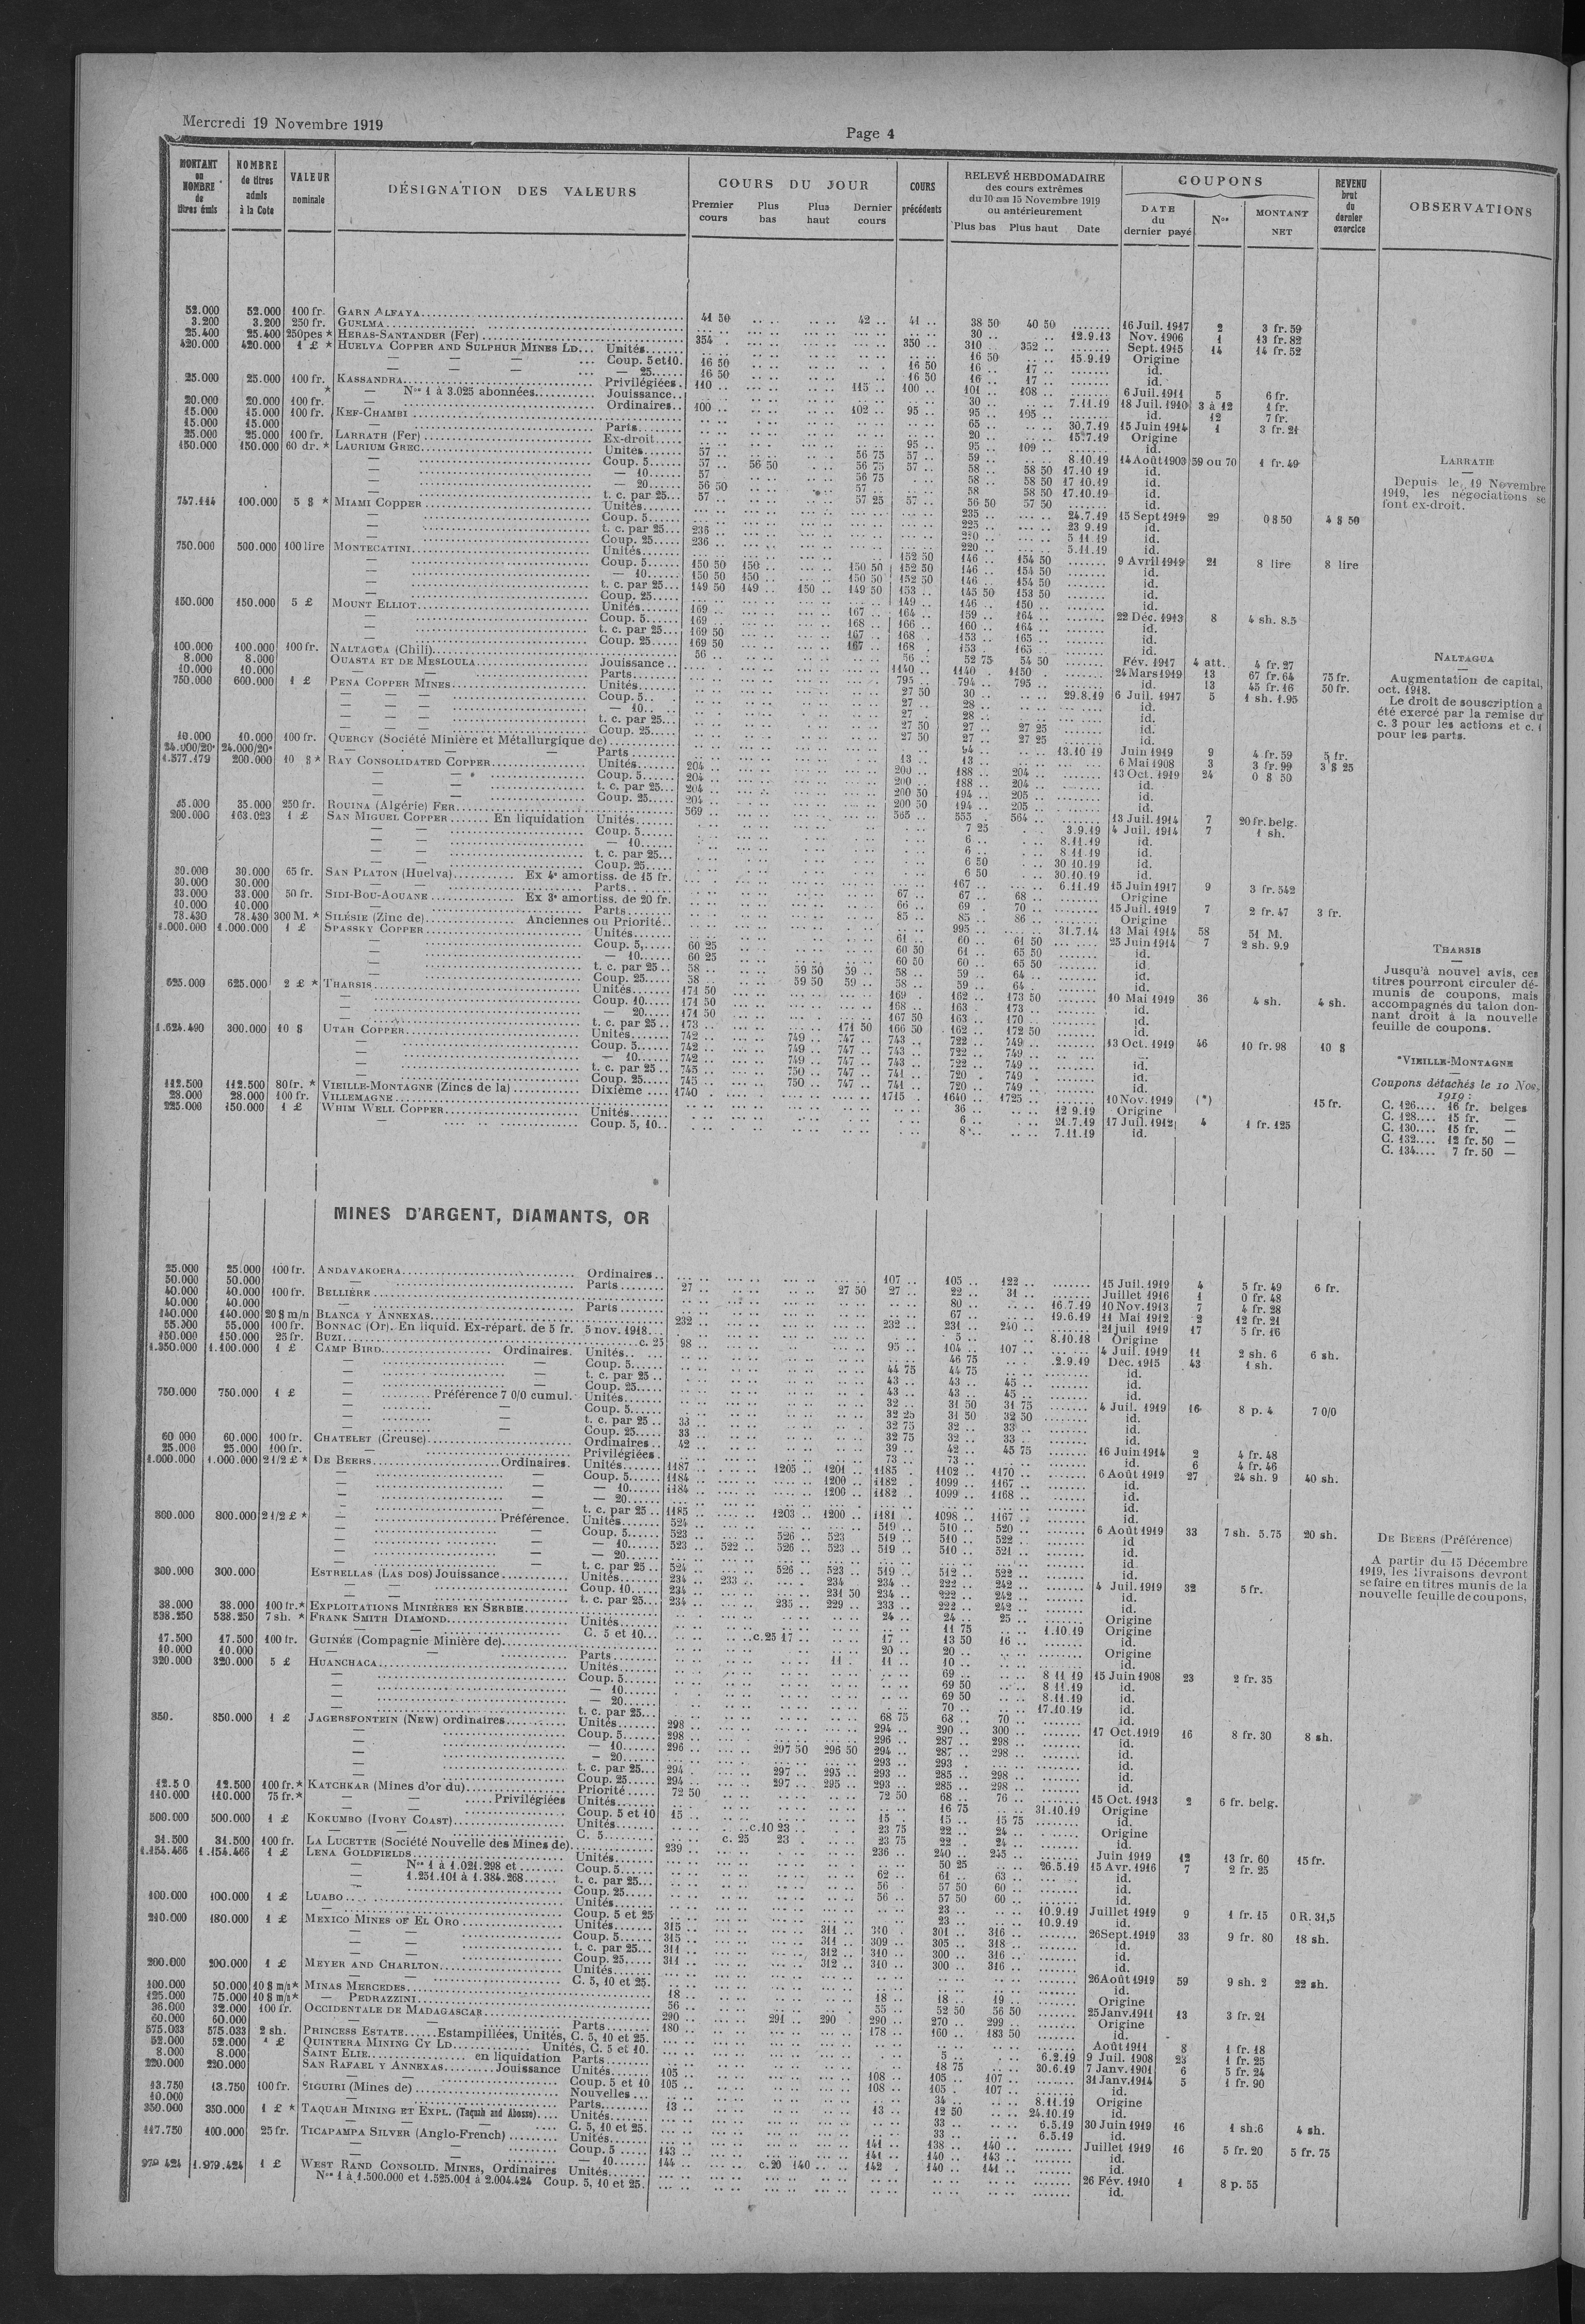 Mercredi 19 Novembre 1919
Page 4
MONTANT ou NOMBRE de titres émis
NOMBRE de titres admis à la Cote
VALEUR nominale
DÉSIGNATION DES VALEURS
COURS DU JOUR
Premier cours
Plus bas
Plus haut
Dernier cours
COURS précédents
RELEVÉ HEBDOMADAIRE
des cours extrêmes
du 10 au 15 Novembre 1919
ou antérieurement
Plus bas Plus haut Date
COUPONS
DATE du dernier payé
Nos
MONTANT NET
REVENU brut du dernier exercice
OBSERVATIONS
52.000 52.000 100 fr. GARN ALFAYA 41 50 42 .. 41 .. 38 50 40 50 16 Juil. 1917 2 3 fr. 59
3.200 3.200 250 fr. GUELMA 30 .. 12.9.13 Nov. 1906 1 13 fr. 82
25.400 25.400 250pes * HERAS-SANTANDER (Fer) 354 350 .. 310 .. 352 .. Sept. 1915 14 14 fr. 52
420.000 420.000 1 £ * HUELVA COPPER AND SULPHUR MINES LD... Unités 16 50 15.9.19 Origine
Coup. 5 et 10. 16 50 16 50 16 .. 17 .. id.
— 25 16 50 16 50 16 .. 17 .. id.
25.000 25.000 100 fr. KASSANDRA Privilégiées. 110 .. 115 .. 100 .. 101 .. 108 .. 6 Juil. 1911 5 6 fr.
* — Nos 1 à 3.025 abonnées Jouissance 30 .. 7.11.19 18 Juil. 1910 3 à 12 1 fr.
20.000 20.000 100 fr. — Ordinaires 100 .. 102 .. 95 .. 95 .. 105 .. id. 12 7 fr.
15.000 15.000 100 fr. KEF-CHAMBI 65 .. 30.7.19 15 Juin 1914 1 3 fr. 21
15.000 15.000 — Parts 20 .. 15.7.19 Origine
25.000 25.000 100 fr. LARRATH (Fer) Ex-droit 95 .. 95 .. 109 .. id.
150.000 150.000 60 dr. * LAURIUM GREC Unités 57 .. 56 75 57 .. 59 .. 8.10.19 14 Août 1903 59 ou 70 1 fr. 49
Coup. 5 57 .. 56 50 56 75 57 .. 58 .. 58 50 17.10 19 id.
— 10 57 56 75 58 .. 58 50 17 10.19 id.
— 20 56 50 57 .. 58 58 50 17.10.19 id.
t. c. par 25 57 .. 57 25 57 .. 56 50 57 50 id.
747.114 100.000 5 $ * MIAMI COPPER Unités 235 .. 24.7.19 15 Sept 1919 29 0 $ 50 4 $ 50
Coup. 5 225 .. 23 9.19 id.
t. c. par 25 236 220 .. 5 11.19 id.
Coup. 25 236 .. 220 .. 5.11.19 id.
750.000 500.000 100 lire MONTECATINI Unités 152 50 146 .. 154 50 9 Avril 1919 21 8 lire 8 lire
Coup. 5 150 50 150 .. 150 50 152 50 146 .. 154 50 id.
— 10 150 50 150 .. 150 50 152 50 146 .. 154 50 id.
t. c. par 25 149 50 149 .. 150 .. 149 50 153 .. 145 50 153 50 id.
Coup. 25 149 .. 146 .. 150 .. id.
150.000 150.000 5 £ MOUNT ELLIOT Unités 169 .. 167 .. 164 .. 159 .. 164 .. 22 Déc. 1913 8 4 sh. 8.5
Coup. 5 169 .. 168 .. 166 .. 160 .. 164 .. id.
t. c. par 25 169 50 167 .. 168 . 153 .. 165 .. id.
Coup. 25 169 50 167 .. 168 . 153 . 165 .. id.
100.000 100.000 100 fr. NALTAGUA (Chili) 56 .. 56 .. 52 75 54 50 Fév. 1917 4 att. 4 fr. 27
8.000 8.000 OUASTA ET DE MESLOULA Jouissance 1140 .. 1140 .. 1150 . 24 Mars 1919 13 67 fr. 64 75 fr.
10.000 10.000 — Parts 795 .. 794 .. 795 .. id. 13 45 fr. 16 50 fr.
750.000 600.000 1 £ PENA COPPER MINES Unités 27 50 30 .. 29.8.19 6 Juil. 1917 5 1 sh. 1.95
Coup. 5 27 .. 28 .. id.
— 10 27 28 .. id.
t. c. par 25 27 50 27 .. 27 25 id.
Coup. 25 27 50 27 .. 27 25 id.
10.000 10.000 100 fr. QUERCY (Société Minière et Métallurgique de) 94 .. 13.10 19 Juin 1919 9 4 fr. 59 5 fr.
24.000/20e 24.000/20e — Parts 13 .. 13 .. 6 Mai 1908 3 3 fr. 99
1.577.179 200.000 10 $ * RAY CONSOLIDATED COPPER Unités 204 .. 200 .. 188 .. 204 .. 13 Oct. 1919 24 0 $ 50 3 $ 25
Coup. 5 204 .. 200 .. 188 .. 204 .. id.
t. c. par 25 204 .. 200 50 194 .. 205 .. id.
Coup. 25 204 .. 200 50 194 .. 205 .. id.
35.000 250 fr. ROUINA (Algérie) FER 569 .. 565 .. 555 . 564 .. 13 Juil. 1914 7 20 fr. belg.
200.000 163.023 1 £ SAN MIGUEL COPPER En liquidation Unités 7 25 3.9.19 4 Juil. 1914 7 1 sh.
Coup. 5 6 .. 8.11.19 id.
— 10 6 .. 8 11.19 id.
t. c. par 25 6 50 30.10.19 id.
Coup. 25 6 50 30.10.19 id.
30.000 30.000 65 fr. SAN PLATON (Huelva) Ex 4e amortiss. de 15 fr. 167 .. 6.11.19 15 Juin 1917 9 3 fr. 542
30.000 30.000 — Parts 67 .. 67 .. 68 .. Origine
33.000 33.000 50 fr. SIDI-BOU-AOUANE Ex 3e amortiss. de 20 fr. 66 .. 69 .. 70 .. 15 Juil. 1919 7 2 fr. 47 3 fr.
10.000 10.000 — Parts 85 .. 85 .. 86 .. Origine
78.430 78.430 300 M. * SILÉSIE (Zinc de) Anciennes ou Priorité 995 .. 31.7.14 13 Mai 1914 58 51 M.
1.000.000 1.000.000 1 £ SPASSKY COPPER Unités 61 .. 60 .. 61 50 25 Juin 1914 7 2 sh. 9.9
Coup. 5 60 25 60 50 61 .. 65 50 id.
— 10 60 25 60 50 60 .. 65 50 id.
t. c. par 25 58 .. 59 50 59 .. 58 .. 59 .. 64 .. id.
Coup. 25 58 .. 59 50 59 .. 58 .. 59 .. 64 . id.
625.000 625.000 2 £ * THARSIS Unités 171 50 169 . 162 .. 173 50 10 Mai 1919 36 4 sh. 4 sh.
Coup. 10 171 50 168 .. 163 . 173 .. id.
— 20 171 50 167 50 163 .. 170 .. id.
t. c. par 25 173 .. 171 50 166 50 162 .. 172 50 id.
1.624.490 300.000 10 $ UTAH COPPER Unités 742 .. 749 .. 747 .. 743 .. 722 .. 749 .. 13 Oct. 1919 46 10 fr. 98 10 $
Coup. 5 742 .. 749 .. 747 .. 743 .. 722 .. 749 ..
— 10 742 .. 749 .. 747 .. 743 .. 722 .. 749 .. id.
t. c. par 25 745 .. 750 .. 747 .. 741 .. 720 . 749 . id.
Coup. 25 745 .. 750 .. 747 .. 741 .. 720 .. 749 .. id.
112.500 112.500 80 fr. * VIEILLE-MONTAGNE (Zincs de la) Dixième 1740 . 1715 . 1640 .. 1725 .. 10 Nov. 1919 (*)
28.000 28.000 100 fr. VILLEMAGNE 36 .. 12 9.19 Origine 15 fr.
225.000 150.000 1 £ WHIM WELL COPPER Unités 6 .. 21.7.19 17 Juil. 1912 4 1 fr. 125
Coup. 5, 10 8 .. 7.11.19 id.
LARRATH
Depuis le 19 Novembre
1919, les négociations se
font ex-droit.
NALTAGUA
Augmentation de capital,
oct. 1918.
Le droit de souscription a
été exercé par la remise du
c. 3 pour les actions et c. 1
pour les parts.
THARSIS
Jusqu'à nouvel avis, ces
titres pourront circuler dé-
munis de coupons, mais
accompagnés du talon don-
nant droit à la nouvelle
feuille de coupons.
*VIEILLE-MONTAGNE
Coupons détachés le 10 Nov.
1919 :
C. 126.... 16 fr. belges
C. 128.... 15 fr. —
C. 130.... 15 fr. —
C. 132.... 12 fr. 50 —
C. 134.... 7 fr. 50 —
MINES D'ARGENT, DIAMANTS, OR
25.000 25.000 100 fr. ANDAVAKOERA Ordinaires 107 .. 105 .. 122 .. 15 Juil. 1919 4 5 fr. 49 6 fr.
50.000 50.000 — Parts 27 .. 27 50 27 .. 22 .. 31 .. Juillet 1916 1 0 fr. 48
40.000 40.000 100 fr. BELLIÈRE 80 .. 16.7.19 10 Nov. 1913 7 4 fr. 28
40.000 40.000 — Parts 67 .. 19.6.19 11 Mai 1912 2 12 fr. 21
140.000 140.000 20 $ m/n BLANCA Y ANNEXAS 232 .. 232 .. 231 .. 240 .. 21 juil 1919 17 5 fr. 16
55.000 55.000 100 fr. BONNAC (Or). En liquid. Ex-répart. de 5 fr. 5 nov. 1918 5 .. 8.10.18 Origine
150.000 150.000 25 fr. BUZI c. 25 98 .. 95 .. 104 .. 107 .. 4 Juil. 1919 11 2 sh. 6 6 sh.
1.350.000 1.100.000 1 £ CAMP BIRD Ordinaires. Unités 46 75 2.9.19 Déc. 1915 43 1 sh.
Coup. 5 44 75 44 75 id.
t. c. par 25 43 .. 43 .. 45 .. id.
Coup. 25 43 .. 43 .. 45 .. id.
750.000 750.000 1 £ — Préférence 7 0/0 cumul. Unités 32 .. 31 50 31 75 4 Juil. 1919 16 8 p. 4 7 0/0
Coup. 5 32 25 31 50 32 50 id.
t. c. par 25 33 32 75 32 .. 33 .. id.
Coup. 25 33 32 75 32 .. 33 .. id.
60 000 60.000 100 fr. CHATELET (Creuse) Ordinaires 42 .. 39 .. 42 .. 45 75 16 Juin 1914 2 4 fr. 48
25.000 25.000 100 fr. — Privilégiées 73 .. 73 .. id. 6 4 fr. 46
1.000.000 1.000.000 2 1/2 £ * DE BEERS Ordinaires. Unités 1187 .. 1205 .. 1201 .. 1185 . 1102 .. 1170 .. 6 Août 1919 27 24 sh. 9 40 sh.
Coup. 5 1184 .. 1200 .. 1182 . 1099 .. 1167 .. id.
— 10 1184 .. 1200 .. 1182 .. 1099 .. 1168 .. id.
— 20 id.
t. c. par 25 1185 .. 1203 .. 1200 .. 1181 .. 1098 .. 1167 .. id.
800.000 800.000 2 1/2 £ * — Préférence. Unités 524 .. 519 .. 510 .. 520 .. 6 Août 1919 33 7 sh. 5.75 20 sh.
Coup. 5 523 .. 526 .. 523 519 .. 510 .. 522 .. id
— 10 523 .. 522 .. 526 .. 523 .. 519 .. 510 .. 521 .. id.
— 20 id
t. c. par 25 524 .. 526 .. 523 .. 519 .. 512 .. 522 .. id.
300.000 300.000 ESTRELLAS (LAS DOS) Jouissance Unités 234 .. 233 .. 234 234 .. 222 .. 242 .. 4 Juil. 1919 32 5 fr.
Coup. 10 234 .. 231 50 234 .. 222 .. 242 .. id.
t. c. par 25 234 .. 235 .. 229 .. 233 .. 222 .. 242 .. id.
38.000 38.000 100 fr. * EXPLOITATIONS MINIÈRES EN SERBIE 24 .. 24 .. 25 .. Origine
538.250 538.250 7 sh. * FRANK SMITH DIAMOND Unités 11 75 1.10.19 Origine
C. 5 et 10 c. 25 17 .. 17 .. 13 50 16 .. id.
17.500 17.500 100 fr. GUINÉE (Compagnie Minière de) 20 .. 20 .. Origine
10.000 10.000 — Parts 11 . 11 .. 10 .. id.
320.000 320.000 5 £ HUANCHACA Unités 69 .. 8 11 19 15 Juin 1908 23 2 fr. 35
Coup. 5 69 50 8 11.19 id.
— 10 69 50 8.11.19 id.
— 20 70 .. 17.10.19 id.
t. c. par 25 68 75 68 .. 70 .. id.
850. 850.000 1 £ JAGERSFONTEIN (New) ordinaires Unités 298 .. 294 .. 290 .. 300 .. 17 Oct. 1919 16 8 fr. 30 8 sh.
Coup. 5 298 .. 296 .. 287 .. 298 .. id.
— 10 296 .. 297 50 296 50 294 .. 287 .. 298 .. id.
— 20 293 .. 293 . id.
t. c. par 25 294 . 297 .. 295 .. 293 .. 285 .. 298 .. id.
Coup. 25 294 .. 297 .. 295 .. 293 .. 285 .. 298 .. id.
12.5 0 12.500 100 fr. * KATCHKAR (Mines d'or du) Priorité 72 50 72 50 68 .. 76 .. 15 Oct. 1913 2 6 fr. belg.
110.000 110.000 75 fr. * — Privilégiées Unités 16 75 31.10.19 Origine
Coup. 5 et 10 15 .. 15 .. 15 .. 15 75 id.
500.000 500.000 1 £ KOKUMBO (IVORY COAST) Unités c. 10 23 .. 23 75 22 .. 24 .. Origine
C. 5 c. 25 23 . 23 75 22 .. 24 .. id.
31.500 31.500 100 fr. LA LUCETTE (Société Nouvelle des Mines de) 239 .. 236 .. 240 .. 245 .. Juin 1919 12 13 fr. 60 15 fr.
1.154.466 1.154.466 1 £ LENA GOLDFIELDS Unités 50 25 26.5.19 15 Avr. 1916 7 2 fr. 25
— Nos 1 à 1.021.298 et Coup. 5 62 .. 61 .. 63 .. id.
1.251.101 à 1.384.268 t. c. par 25 56 57 50 60 .. id.
Coup. 25 56 .. 57 50 60 .. id.
100.000 100.000 1 £ LUABO Unités 23 .. 10.9.19 Juillet 1919 9 1 fr. 15 0 R. 31,5
Coup. 5 et 25 23 .. 10.9.19 id.
210.000 180.000 1 £ MEXICO MINES OF EL ORO Unités 315 .. 311 .. 310 . 301 .. 316 .. 26 Sept. 1919 33 9 fr. 80 18 sh.
Coup. 5 315 .. 311 .. 309 .. 305 .. 318 .. id.
t. c. par 25 311 .. 312 .. 310 .. 300 .. 316 .. id.
Coup. 25 311 .. 312 .. 310 .. 300 .. 316 .. id.
200.000 200.000 1 £ MEYER AND CHARLTON Unités 26 Août 1919 59 9 sh. 2 22 sh.
C. 5, 10 et 25. id.
100.000 50.000 10 $ m/n * MINAS MERCEDES 18 .. 18 .. 18 .. 19 .. Origine
125.000 75.000 10 $ m/n * — PEDRAZZINI 56 .. 55 .. 52 50 56 50 25 Janv. 1911 13 3 fr. 21
36.000 32.000 100 fr. OCCIDENTALE DE MADAGASCAR 290 .. 291 .. 290 . 290 .. 270 .. 299 .. Origine
60.000 60.000 — Parts 180 .. 178 .. 160 .. 183 50 id.
575.033 575.033 2 sh. PRINCESS ESTATE Estampillées, Unités, C. 5, 10 et 25. Août 1911 8 1 fr. 18
52.000 52.000 £ QUINTERA MINING CY LD Unités, C. 5 et 10. 5 .. 6.2.19 9 Juil. 1908 23 1 fr. 25
8.000 8.000 SAINT ELIE en liquidation Parts 18 75 30.6.19 7 Janv. 1901 6 5 fr. 24
220.000 220.000 SAN RAFAEL Y ANNEXAS Jouissance Unités 105 .. 108 .. 105 .. 107 .. 31 Janv. 1914 5 1 fr. 90
Coup. 5 et 10 105 .. 108 .. 105 . 107 .. id.
13.750 13.750 100 fr. SIGUIRI (Mines de) Nouvelles 34 .. 8.11.19 Origine
10.000 — Parts 13 .. 13 .. 12 50 24.10.19 id.
350.000 350.000 1 £ * TAQUAH MINING ET EXPL. (Taquah and Abosso) Unités 33 .. 6.5.19 30 Juin 1919 16 1 sh.6 4 sh.
C. 5, 10 et 25. 33 .. 6.5.19 id.
117.750 100.000 25 fr. TICAPAMPA SILVER (Anglo-French) Unités 141 .. 138 .. 140 .. Juillet 1919 16 5 fr. 20 5 fr. 75
Coup. 5 143 .. 141 .. 140 .. 143 .. id.
— 10 144 .. c. 20 140 .. 142 . 140 .. 141 .. id.
979 424 1.979.424 1 £ WEST RAND CONSOLID. MINES, Ordinaires Unités 26 Fév. 1910 1 8 p. 55
Nos 1 à 1.500.000 et 1.525.001 à 2.004.424 Coup. 5, 10 et 25. id.
DE BEERS (Préférence)
A partir du 15 Décembre
1919, les livraisons devront
se faire en titres munis de la
nouvelle feuille de coupons.